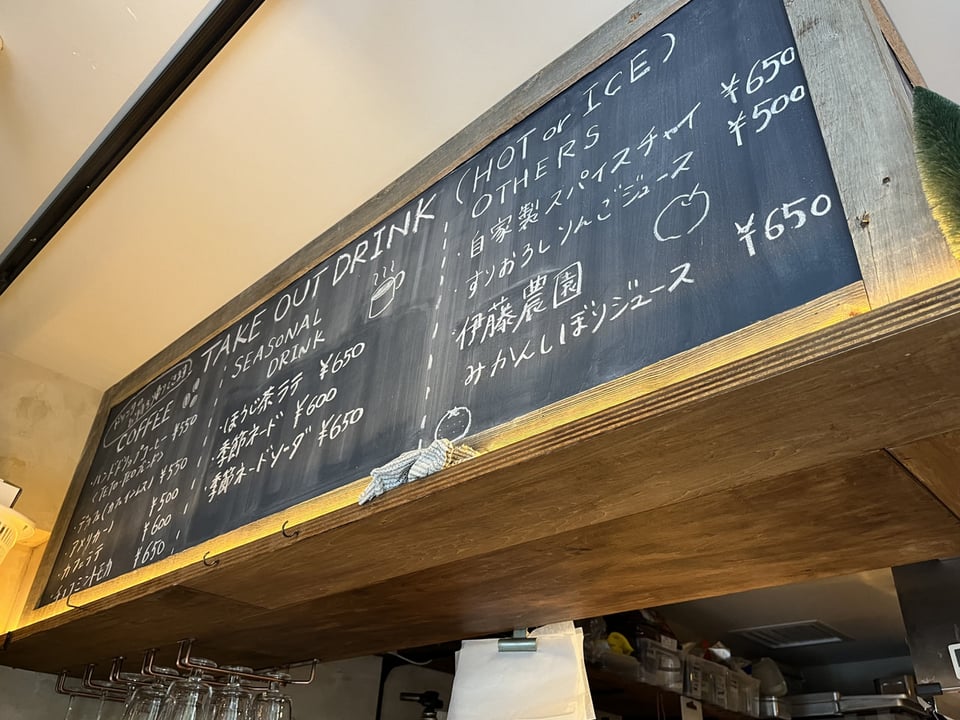 TAKE OUT DRINK (HOT or ICE)
COFFEE
・ハンドドリップコーヒー ¥550
・デカフェ(カフェインレス) ¥550
・アメリカーノ ¥500
・カフェラテ ¥600
ミントモカ ¥650
SEASONAL
DRINK
・ほうじ茶ラテ ¥650
・季節ネード ¥600
・季節ネードソーダ ¥650
OTHERS
・自家製スパイスチャイ ¥650
・すりおろしりんごジュース ¥500
・伊藤農園
みかんしぼりジュース ¥650